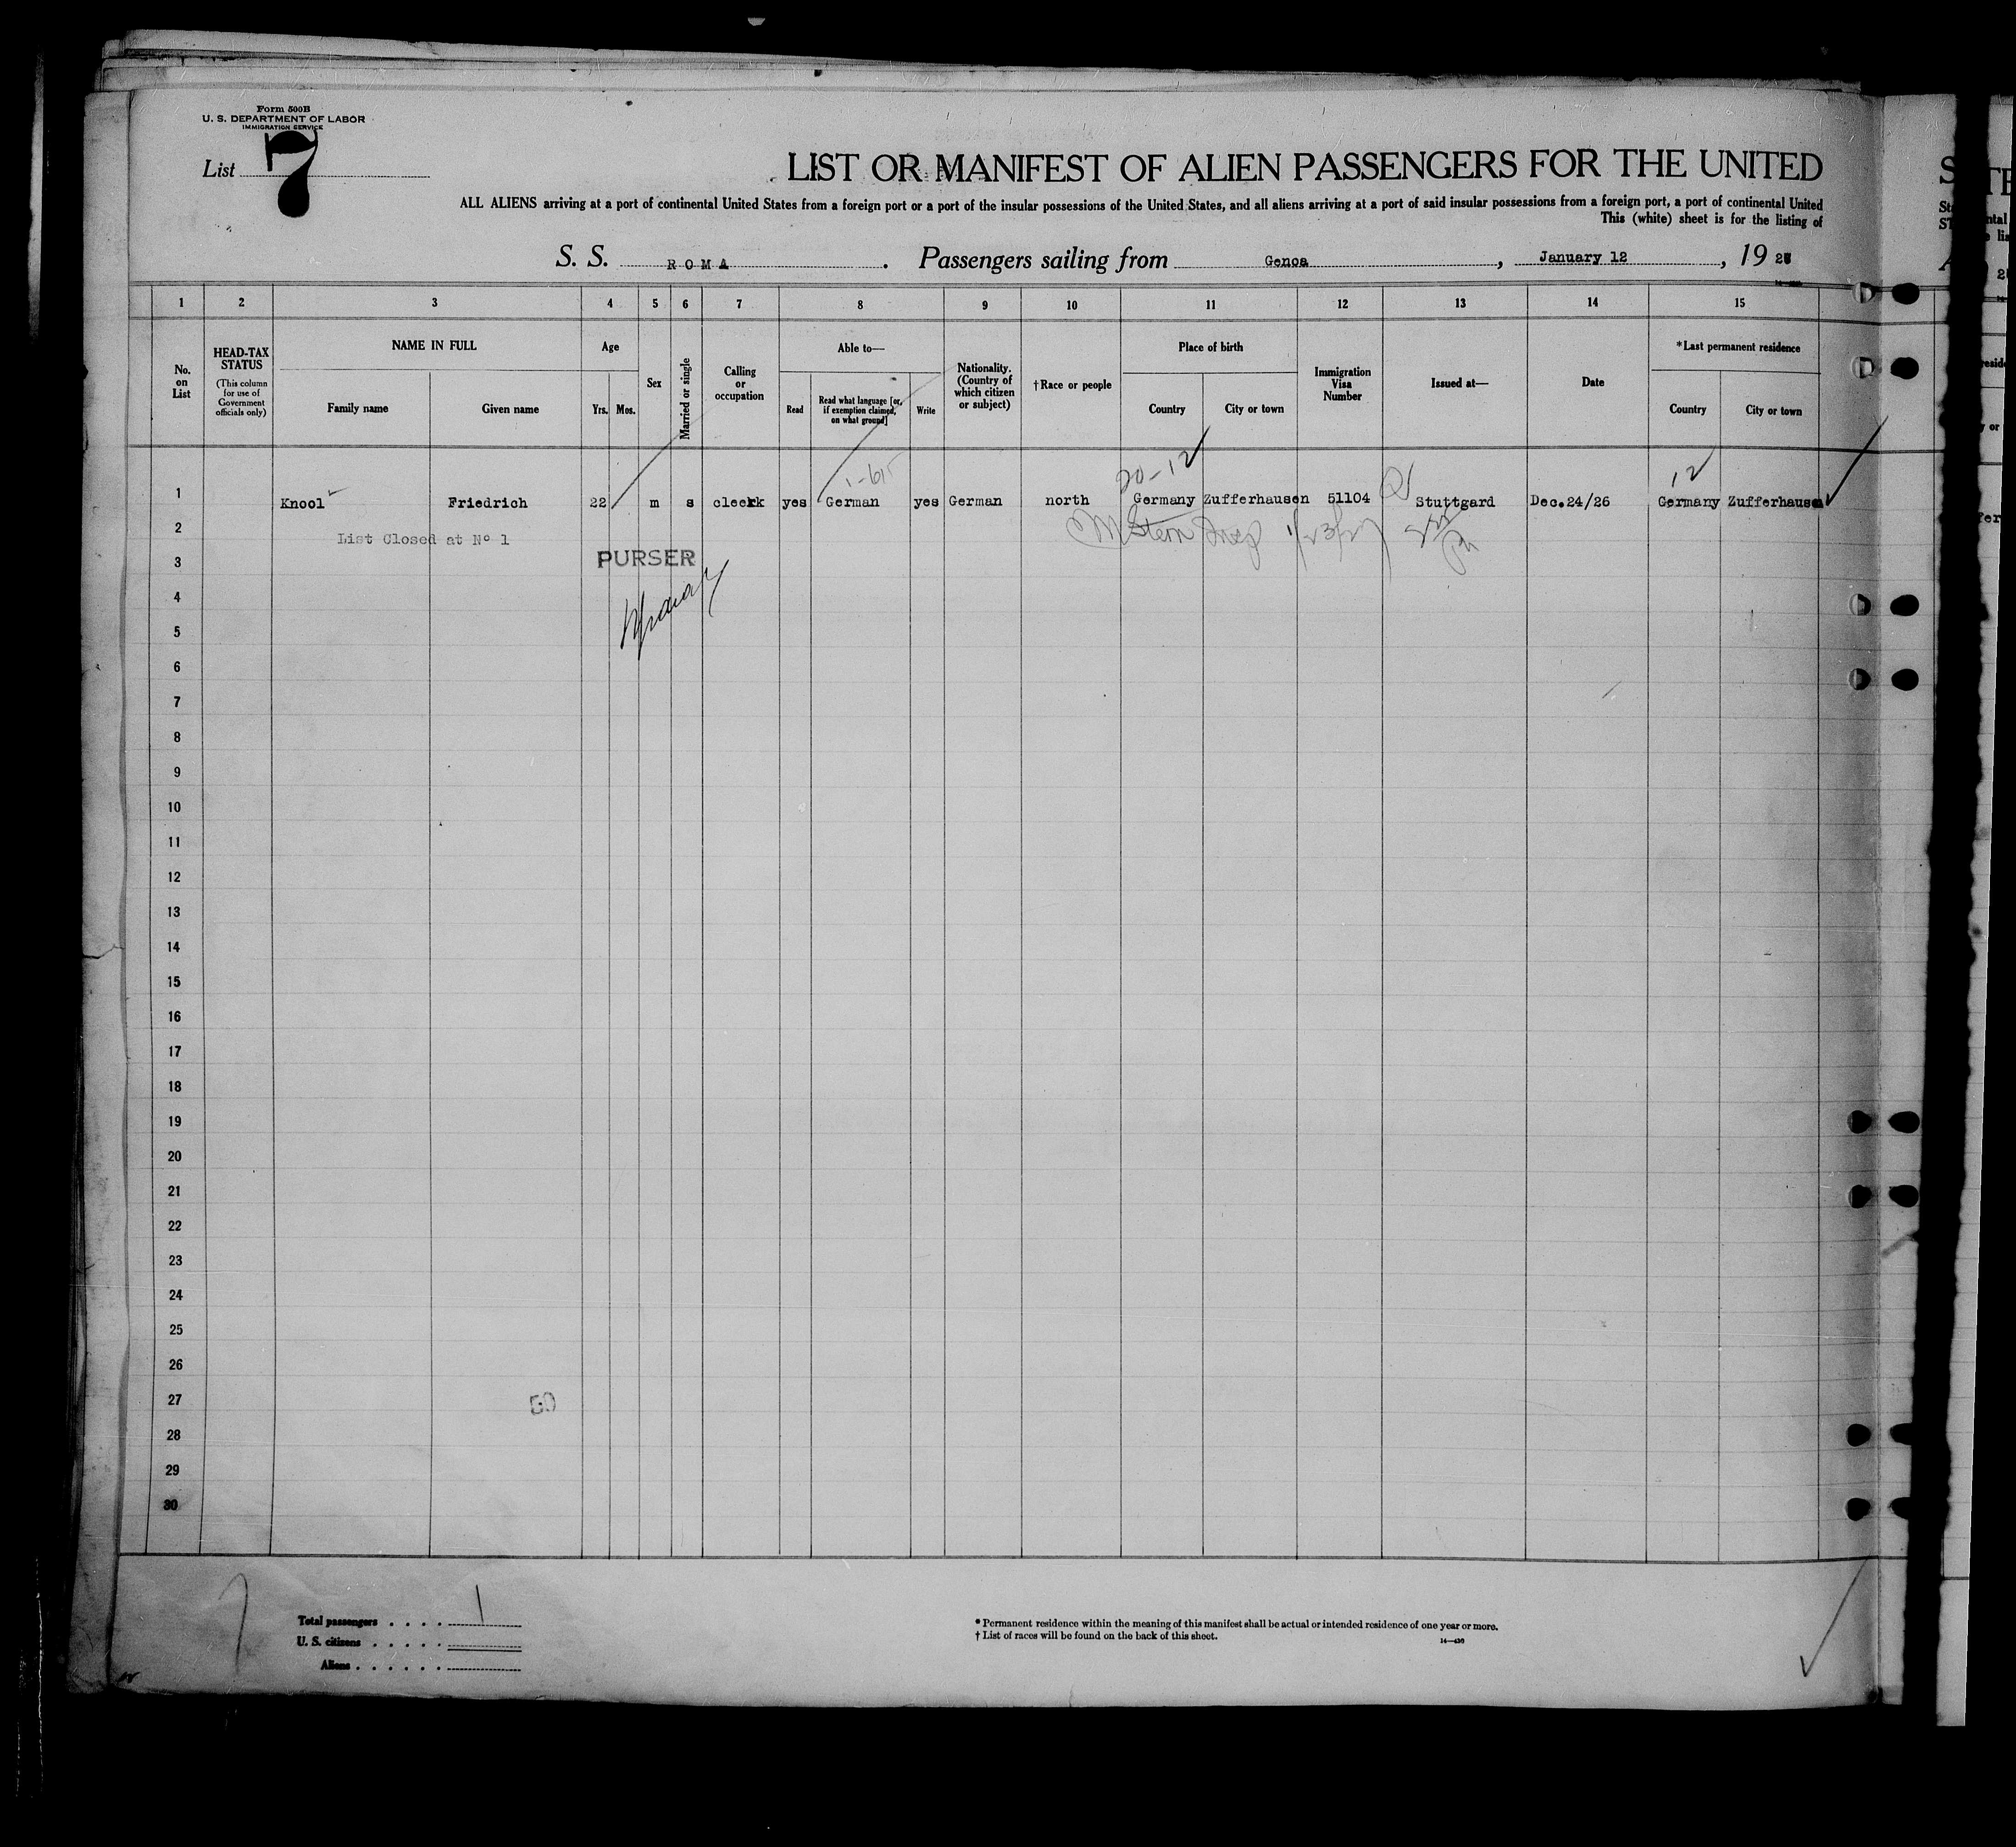 Form 500B
U. S. DEPARTMENT OF LABOR
IMMIGRATION SERVICE
List 7
LIST OR MANIFEST OF ALIEN PASSENGERS FOR THE UNITED
ALL ALIENS arriving at a port of continental United States from a foreign port or a port of the insular possessions of the United States, and all aliens arriving at a port of said insular possessions from a foreign port, a port of continental United
This (white) sheet is for the listing of
S. S. ROMA. Passengers sailing from Genoa, January 12, 19
1 2 3 4 5 6 7 8 9 10 11 12 13 14 15
No. on List
HEAD-TAX STATUS
(This column for use of Government officials only)
NAME IN FULL
Family name
Given name
Age
Yrs. Mos.
Sex
Married or single
Calling or occupation
Able to—
Read
Read what language [or, if exemption claimed, on what ground]
Write
Nationality. (Country of which citizen or subject)
†Race or people
Place of birth
Country
City or town
Immigration Visa Number
Issued at—
Date
*Last permanent residence
Country
City or town
20-12
12
1 Knool Friedrich 22 m s cleerk yes German yes German north Germany Zufferhausen 51104 Stuttgard Dec.24/26 Germany Zufferhausen
2
List Closed at Nº 1
3
PURSER
4
5
6
7
8
9
10
11
12
13
14
15
16
17
18
19
20
21
22
23
24
25
26
27
50
28
29
30
Total passengers . . . . 1
U. S. citizens . . . . .
Aliens . . . . . .
* Permanent residence within the meaning of this manifest shall be actual or intended residence of one year or more.
† List of races will be found on the back of this sheet.
14—430